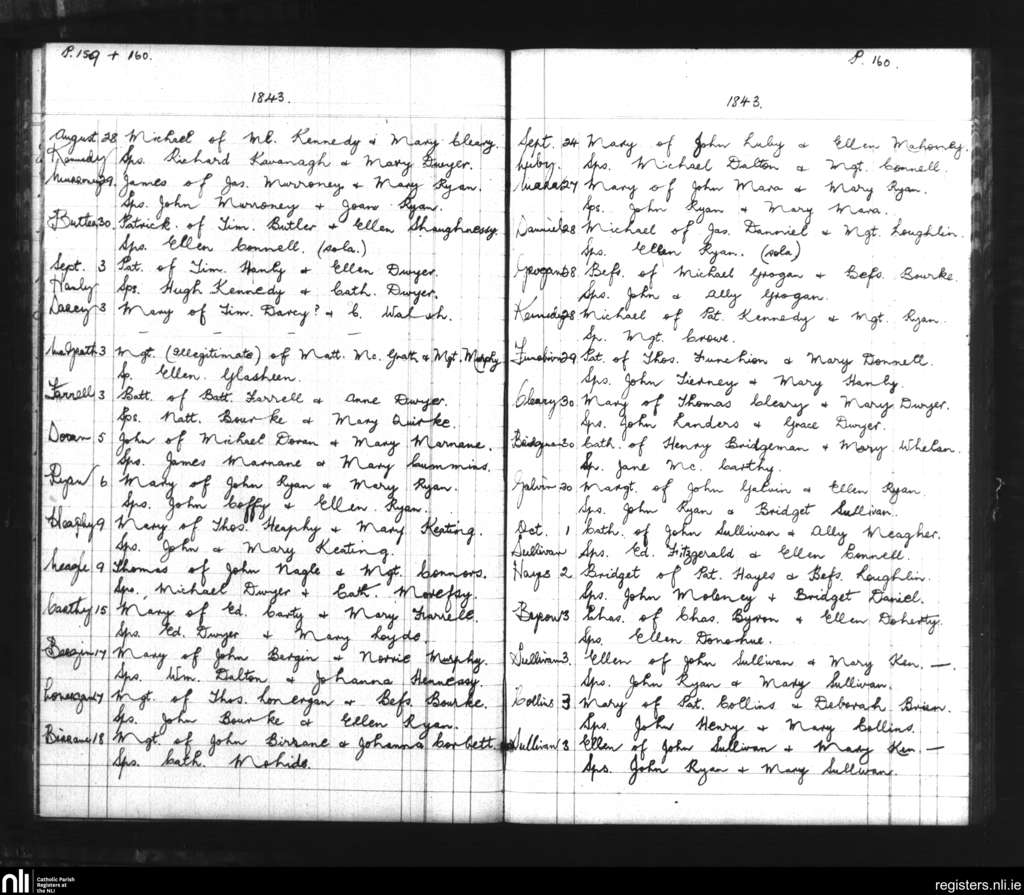 P. 159 + 160.
1843.
August 28 Michael of Ml. Kennedy & Mary Cleary.
Kennedy Sps. Richard Kavanagh & Mary Dwyer.
Murroney 29. James of Jas. Murroney & Mary Ryan.
Sps. John Murroney & Joan Ryan.
Butler 30. Patrick of Tim. Butler & Ellen Shaughnessy.
Sps. Ellen Connell. (sola.)
Sept. 3 Pat. of Tim. Hanly & Ellen Dwyer.
Hanly Sps. Hugh Kennedy & Cath. Dwyer.
Darcy 3 Mary of Tim. Darcy? & C. Walsh.
— — — —
McGrath 3 Mgt. (allegitimate) of Matt. Mc. Grath & Mgt. Murphy
Sp. Ellen Glasheen.
Farrell 3 Batt. of Batt. Farrell & Anne Dwyer.
Sps. Natt. Bourke & Mary Quirke.
Doran 5 John of Michael Doran & Mary Marnane.
Sps. James Marnane & Mary Cummins.
Ryan 6 Mary of John Ryan & Mary Ryan.
Sps. John Coffy & Ellen Ryan.
Heaphy 9 Mary of Thos. Heaphy & Mary Keating.
Sps. John & Mary Keating.
Neagle 9 Thomas of John Nagle & Mgt. Connors.
Sps. Michael Dwyer & Cath.
Carthy 15 Mary of Ed. Carty & Mary Farrell.
Sps. Ed. Dwyer & Mary Loyde.
Bergin 17 Mary of John Bergin & Norrie Murphy.
Sps. Wm. Dalton & Johanna Hennessy.
Lonergan 17 Mgt. of Thos. Lonergan & Befs. Bourke.
Sps. John Bourke & Ellen Ryan.
Birrane 18 Mgt. of John Birrane & Johanna Corbett.
Sps. Cath. Mohide.
P. 160.
1843.
Sept. 24 Mary of John Luby & Ellen Mahoney.
Luby. Sps. Michael Dalton & Mgt. Connell.
Mara 27 Mary of John Mara & Mary Ryan.
Sps. John Ryan & Mary Mara.
Daniel 28 Michael of Jas. Danniel & Mgt. Loughlin.
Sps. Ellen Ryan. (sola)
Grogan 28 Befs. of Michael Grogan & Befs. Bourke.
Sps. John & Ally Grogan.
Kennedy 28 Michael of Pat. Kennedy & Mgt. Ryan.
Sp. Mgt. Crowe.
Funchion 29 Pat. of Thos. Funchion & Mary Donnell.
Sps. John Tierney & Mary Hanly.
Cleary 30. Mary of Thomas Cleary & Mary Dwyer.
Sps. John Landers & Grace Dwyer.
Bridgeman 30 Cath. of Henry Bridgeman & Mary Whelan.
Sp. Jane Mc. Carthy.
Galvin 30 Margt. of John Galvin & Ellen Ryan.
Sps. John Ryan & Bridget Sullivan.
Oct. 1 Cath. of John Sullivan & Ally Meagher.
Sullivan Sps. Ed. Fitzgerald & Ellen Connell.
Hayes 2 Bridget of Pat. Hayes & Befs. Loughlin.
Sps. John Moloney & Bridget Daniel.
Byron 3 Chas. of Chas. Byron & Ellen Doherty.
Sps. Ellen Donohue.
Sullivan 3. Ellen of John Sullivan & Mary Ken. —
Sps. John Ryan & Mary Sullivan.
Collins 3 Mary of Pat. Collins & Deborah Brien.
Sps. John Henry & Mary Collins.
Sullivan 3 Ellen of John Sullivan & Mary Ken. —
Sps. John Ryan & Mary Sullivan.
nli Catholic Parish
Registers at
the NLI
registers.nli.ie